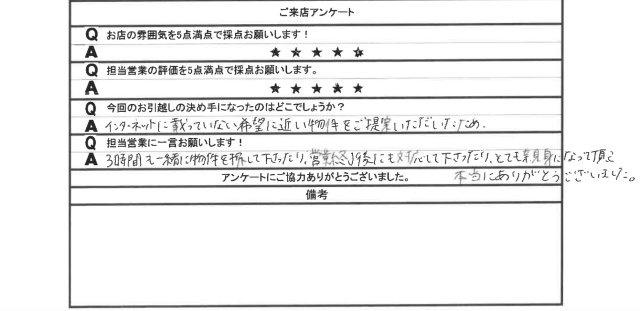 ご来店アンケート
Q お店の雰囲気を5点満点で採点お願いします！
A ★ ★ ★ ★ ★
Q 担当営業の評価を5点満点で採点お願いします。
A ★ ★ ★ ★ ★
Q 今回のお引越しの決め手になったのはどこでしょうか？
A インターネットに載っていない希望に近い物件をご提案いただいたため.
Q 担当営業に一言お願いします！
A 3時間も一緒に物件を探して下さったり、営業終了後にも対応して下さったり、とても親身になって頂き
本当にありがとうございました。
アンケートにご協力ありがとうございました。
備考